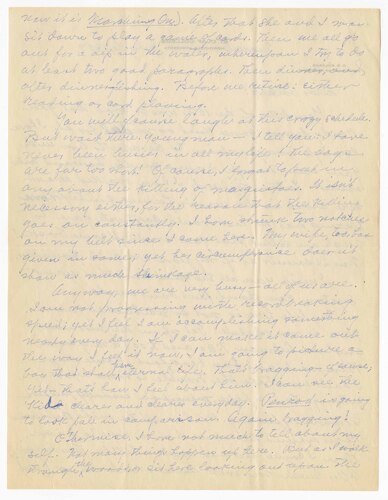 now it is Morning On. After that she and I may
sit down to play a game of cards. Then we all go
out for a dip in the water, whereupon I try to do
at least two good paragraphs. Then dinner, and
after dinner fishing. Before we retire: either
reading or card playing.
You will of course laugh at this crazy schedule.
But wait there, young man — I tell you I have
never been busier in all my life! The days
are far too short! Of course, I forgot to put in
any about the killing of mosquitoes. It isn't
necessary either, for the reason that the killing
goes on constantly. I have shrunk two notches
on my belt since I came here. My wife, too, has
given in some, yet her circumference doesn't
show as much shrinkage.
Anyway, we are very busy — all of us are.
I am not progressing with record breaking
speed; yet I feel I am accomplishing something
nearly every day. If I can make it come out
the way I feel it now, I am going to picture a
boy that shall live eternal life. That's bragging of course,
yet that's how I feel about him. I can see the
kid clearer and clearer everyday. is going
to look pale in comparison. Again bragging!
Otherwise, I have not much to tell about my
self. Not many things happen up here. But as I walk
through the woods or sit here looking out upon the